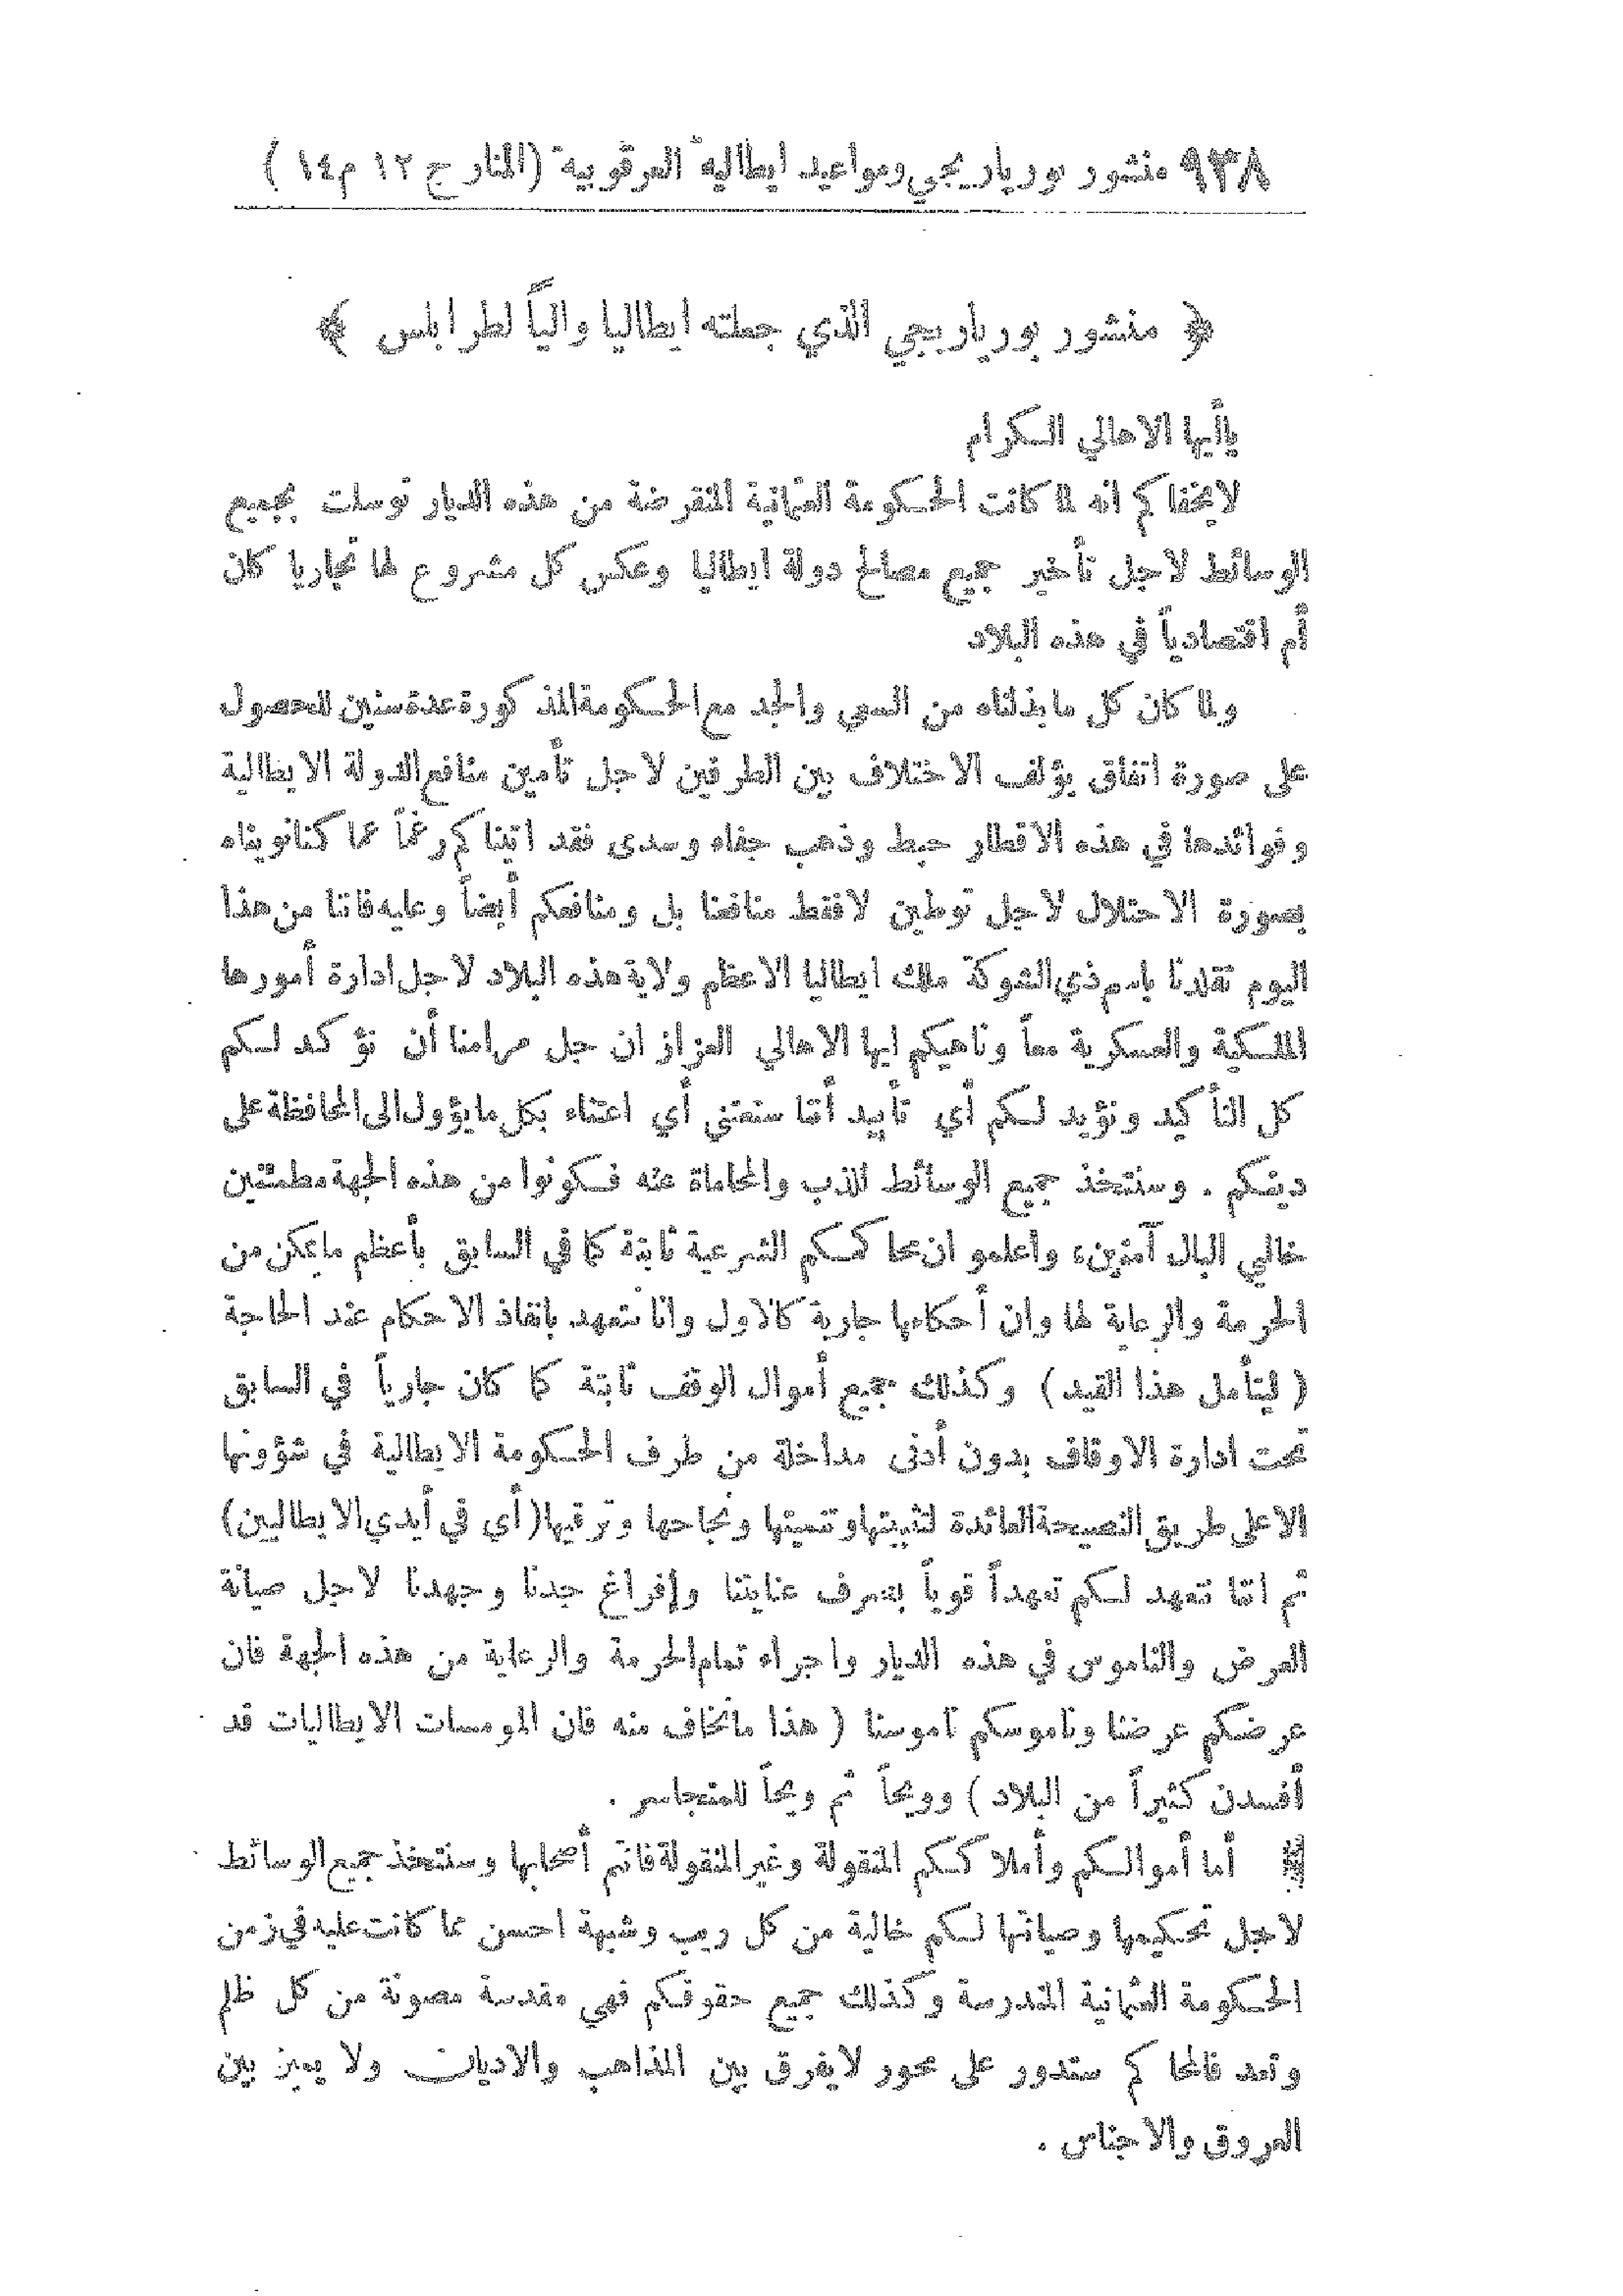 ٩٣٨ منشور بوريار يجي ومواعيد ايطاليه العرقوبية (المنار ج ١٢ م١٤ )
﴿ منشور بوريار يجي الذي جعلته ايطاليا والياً لطرابلس ﴾
ياأيها الاهالي الكرام
لايخفاكم انه لما كانت الحكومة العثمانية المنقرضة من هذه الديار توسلت بجميع
الوسائط لاجل تأخير جميع مصالح دولة ايطاليا وعكس كل مشروع لها تجاريا كان
أم اقتصادياً في هذه البلاد
ولما كان كل مابذلناه من السعي والجد مع الحكومة المذكورة عدة سنين للحصول
على صورة اتفاق يؤلف الاختلاف بين الطرفين لاجل تأمين منافع الدولة الايطالية
وفوائدها في هذه الاقطار حبط وذهب جفاء وسدى فقد اتيناكم رغماً عما كنا نويناه
بصورة الاحتلال لاجل توطين لافقط منافعنا بل ومنافعكم أيضاً وعليه فاننا من هذا
اليوم تقلدنا باسم ذي الشوكة ملك ايطاليا الاعظم ولاية هذه البلاد لاجل ادارة أمورها
الملكية والعسكرية معاً وناهيكم ايها الاهالي العزاز ان جل مرامنا أن نؤكد لكم
كل التأكيد ونؤيد لكم أي تأييد أننا سنعتني أي اعتناء بكل مايؤول الى المحافظة على
دينكم . وسنتخذ جميع الوسائط للذب والمحاماة عنه فكونوا من هذه الجهة مطمئنين
خالي البال آمنين، واعلمو ان محاكمكم الشرعية ثابتة كما في السابق بأعظم مايمكن من
الحرمة والرعاية لها وان أحكامها جارية كالاول وانا نتعهد بانفاذ الاحكام عند الحاجة
( ليتأمل هذا القيد ) وكذلك جميع أموال الوقف ثابتة كما كان جارياً في السابق
تحت ادارة الاوقاف بدون أدنى مداخلة من طرف الحكومة الايطالية في شؤونها
الاعلى طريق النصيحة العائدة لتثبيتها وتنميتها ونجاحها وترقيها (أي في أيدي الايطاليين)
ثم اننا نتعهد لكم تعهداً قوياً بصرف عنايتنا وإفراغ جدنا وجهدنا لاجل صيانة
العرض والناموس في هذه الديار واجراء تمام الحرمة والرعاية من هذه الجهة فان
عرضكم عرضنا وناموسكم ناموسنا ( هذا مانخاف منه فان المومسات الايطاليات قد
أفسدن كثيراً من البلاد ) وويحاً ثم ويحاً للمتجاسر .
أما أموالكم وأملاككم المنقولة وغير المنقولة فانتم أصحابها وسنتخذ جميع الوسائط
لاجل تحكيمها وصيانتها لكم خالية من كل ريب وشبهة احسن مما كانت عليه في زمن
الحكومة العثمانية المندرسة وكذلك جميع حقوقكم فهي مقدسة مصونة من كل ظلم
وتعد فالحاكم ستدور على محور لايفرق بين المذاهب والاديان ولا يميز بين
العروق والاجناس .